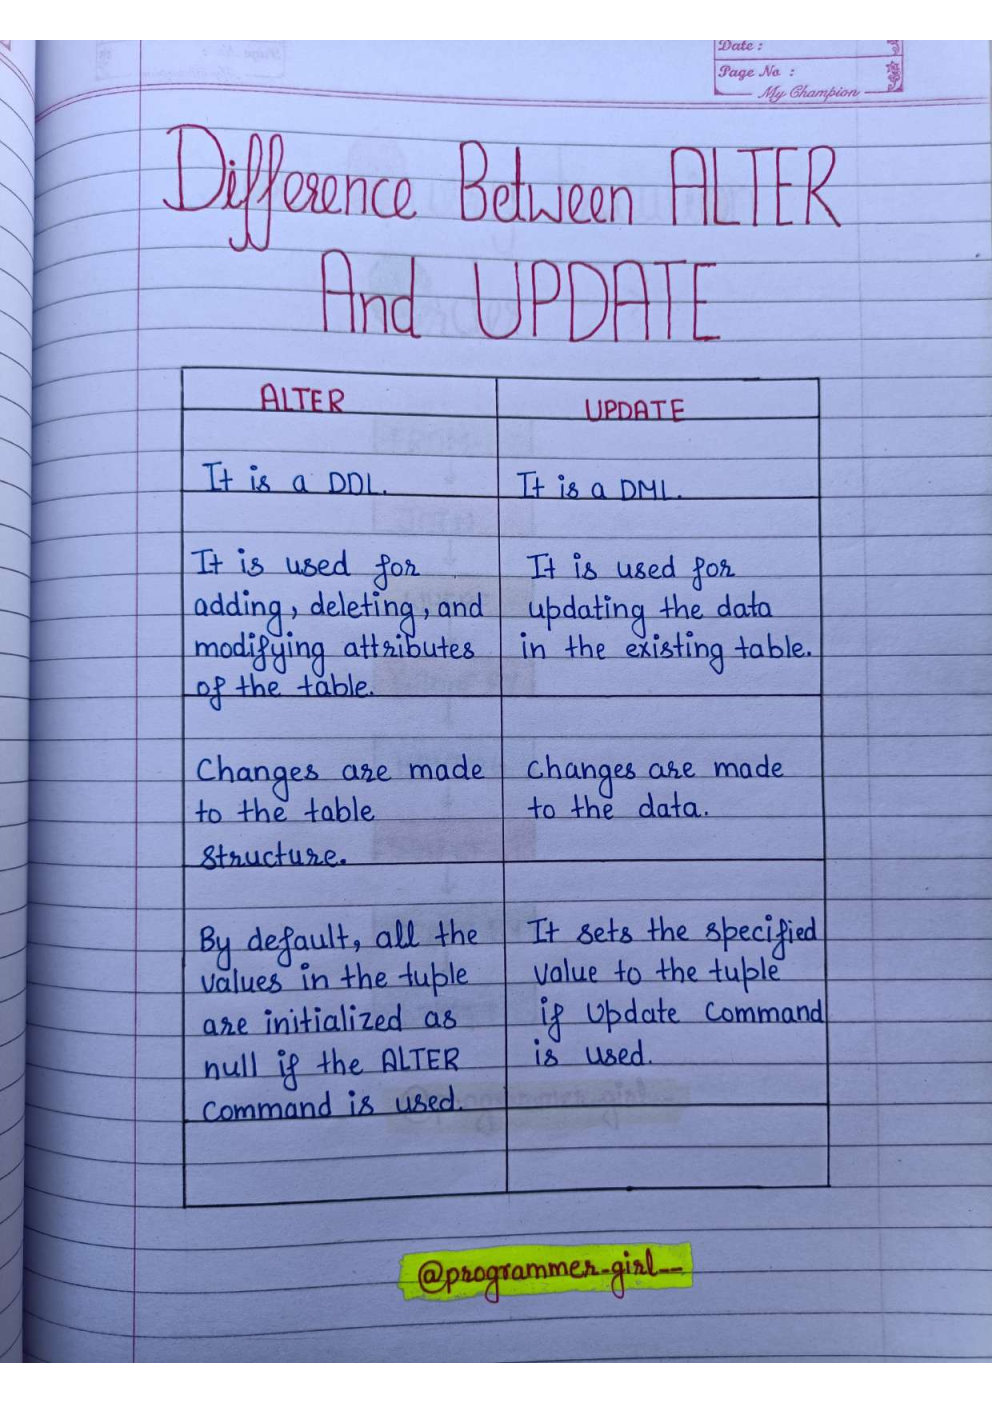 Date :
Page No :
My Champion
Difference Between ALTER
And UPDATE
ALTER
UPDATE
It is a DDL.
It is a DML.
It is used for
adding, deleting, and
modifying attributes
of the table.
It is used for
updating the data
in the existing table.
Changes are made
to the table
structure.
changes are made
to the data.
By default, all the
values in the tuple
are initialized as
null if the ALTER
Command is used.
It sets the specified
value to the tuple
if Update Command
is used.
@programmer-girl__